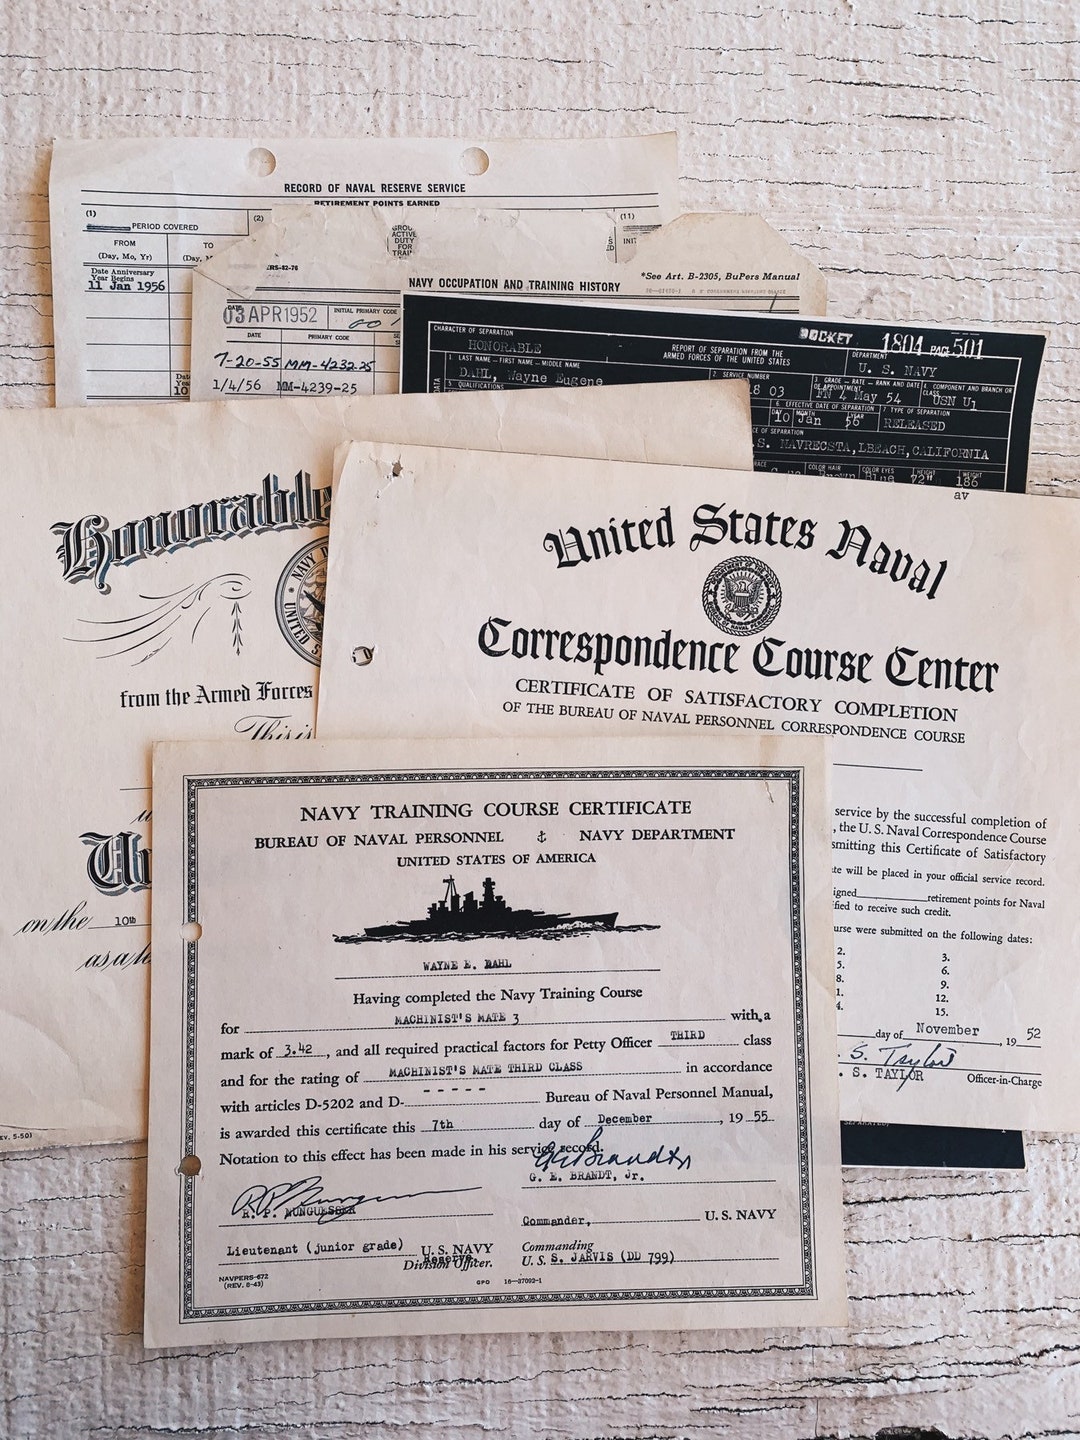 RECORD OF NAVAL RESERVE SERVICE
RETIREMENT POINTS EARNED
(1)
PERIOD COVERED
(2)
(11)
FROM
(Day, Mo, Yr)
TO
(Day, M
Date Anniversary
Year Begins
11 Jan 1956
Date
10
GROU
ACTIVE
DUTY
FOR
TRAI
INIT
ERS-82-76
*See Art. B-2305, BuPers Manual
NAVY OCCUPATION AND TRAINING HISTORY
DATE
03 APR 1952
INITIAL PRIMARY CODE
DATE
PRIMARY CODE
7-20-55 MM-4232-25
1/4/56 MM-4239-25
CHARACTER OF SEPARATION
HONORABLE
REPORT OF SEPARATION FROM THE
ARMED FORCES OF THE UNITED STATES
DOCKET 1804 PAGE 501
DEPARTMENT
U. S. NAVY
1. LAST NAME - FIRST NAME - MIDDLE NAME
DAHL, Wayne Eugene
2. SERVICE NUMBER
18 03
3. GRADE - RATE - RANK AND DATE OF APPOINTMENT
FN 4 May 54
4. COMPONENT AND BRANCH OR CLASS
USN U1
5. QUALIFICATIONS
DATA
6. EFFECTIVE DATE OF SEPARATION
DAY
10
MONTH
Jan
YEAR
56
7 TYPE OF SEPARATION
RELEASED
CE OF SEPARATION
.S. NAVRECSTA, LBEACH, CALIFORNIA
RACE
COLOR HAIR
Brown
COLOR EYES
Blue
HEIGHT
72"
WEIGHT
186
av
Honorable
NAVY D
UNITED S
from the Armed Forces
This is
Un
on the 10th
as a
EV. 5-50)
United States Naval
DEPARTMENT OF THE NAVY
BUREAU OF NAVAL PERSONNEL
Correspondence Course Center
CERTIFICATE OF SATISFACTORY COMPLETION
OF THE BUREAU OF NAVAL PERSONNEL CORRESPONDENCE COURSE
service by the successful completion of
, the U. S. Naval Correspondence Course
smitting this Certificate of Satisfactory
te will be placed in your official service record.
igned retirement points for Naval
fied to receive such credit.
urse were submitted on the following dates:
2. 3.
5. 6.
8. 9.
1. 12.
4. 15.
day of November , 19 52
. S. Taylor
. S. TAYLOR Officer-in-Charge
NAVY TRAINING COURSE CERTIFICATE
BUREAU OF NAVAL PERSONNEL NAVY DEPARTMENT
UNITED STATES OF AMERICA
WAYNE E. DAHL
Having completed the Navy Training Course
for MACHINIST'S MATE 3 with a
mark of 3.42 , and all required practical factors for Petty Officer THIRD class
and for the rating of MACHINIST'S MATE THIRD CLASS in accordance
with articles D-5202 and D- ----- Bureau of Naval Personnel Manual,
is awarded this certificate this 7th day of December , 19 55
Notation to this effect has been made in his service record.
G E Brandt Jr
G. E. BRANDT, Jr.
R. P. NUNGUESSER
Commander, U. S. NAVY
Lieutenant (junior grade) U. S. NAVY
Reserve.
Division Officer.
Commanding
U. S. S. JARVIS (DD 799)
NAVPERS-672
(REV. 8-43)
GPO 16-37092-1